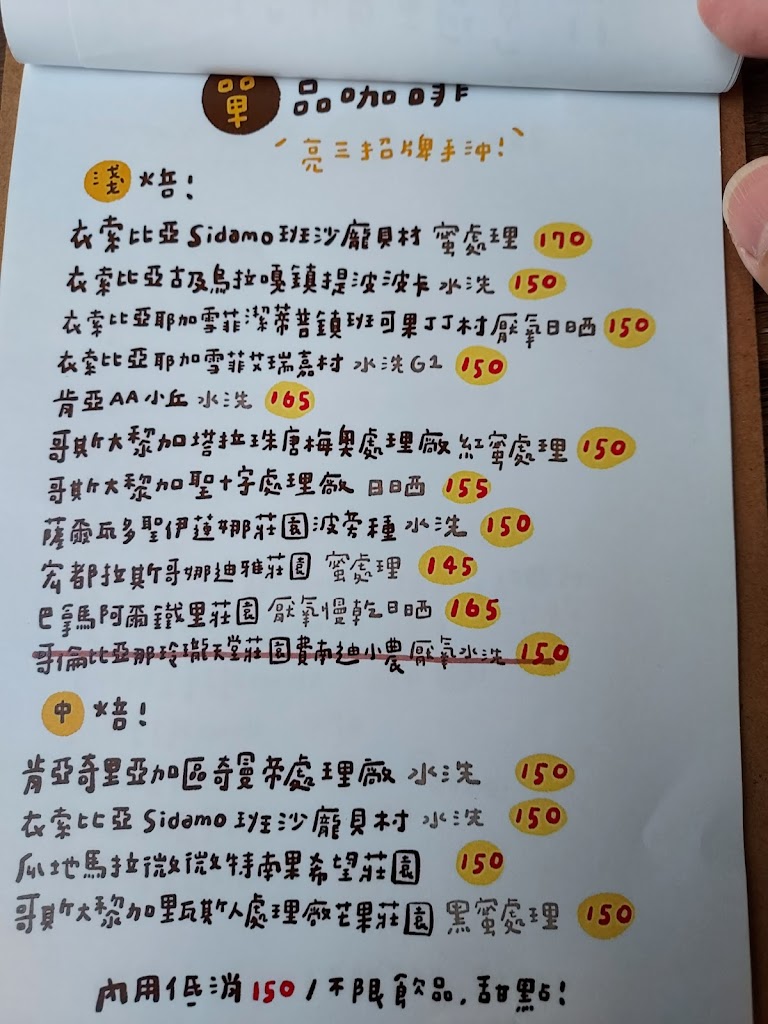 單品咖啡
亮三招牌手沖!
淺焙!
衣索比亞Sidamo班沙龐貝村 蜜處理 170
衣索比亞古及烏拉嘎鎮提波波卡 水洗 150
衣索比亞耶加雪菲潔蒂普鎮班可果丁丁村厭氧日晒 150
衣索比亞耶加雪菲艾瑞嘉村 水洗G1 150
肯亞AA小丘 水洗 165
哥斯大黎加塔拉珠唐梅奧處理廠 紅蜜處理 150
哥斯大黎加聖十字處理廠 日晒 155
薩爾瓦多聖伊蓮娜莊園波旁種 水洗 150
宏都拉斯哥娜迪雅莊園 蜜處理 145
巴拿馬阿爾鐵里莊園 厭氧慢乾日晒 165
哥倫比亞那玲瓏天堂莊園費南迪小農 厭氧水洗 150
中焙!
肯亞奇里亞加區奇曼帝處理廠 水洗 150
衣索比亞Sidamo班沙龐貝村 水洗 150
瓜地馬拉微微特南果希望莊園 150
哥斯大黎加里瓦斯人處理廠芒果莊園 黑蜜處理 150
內用低消150/不限飲品,甜點!